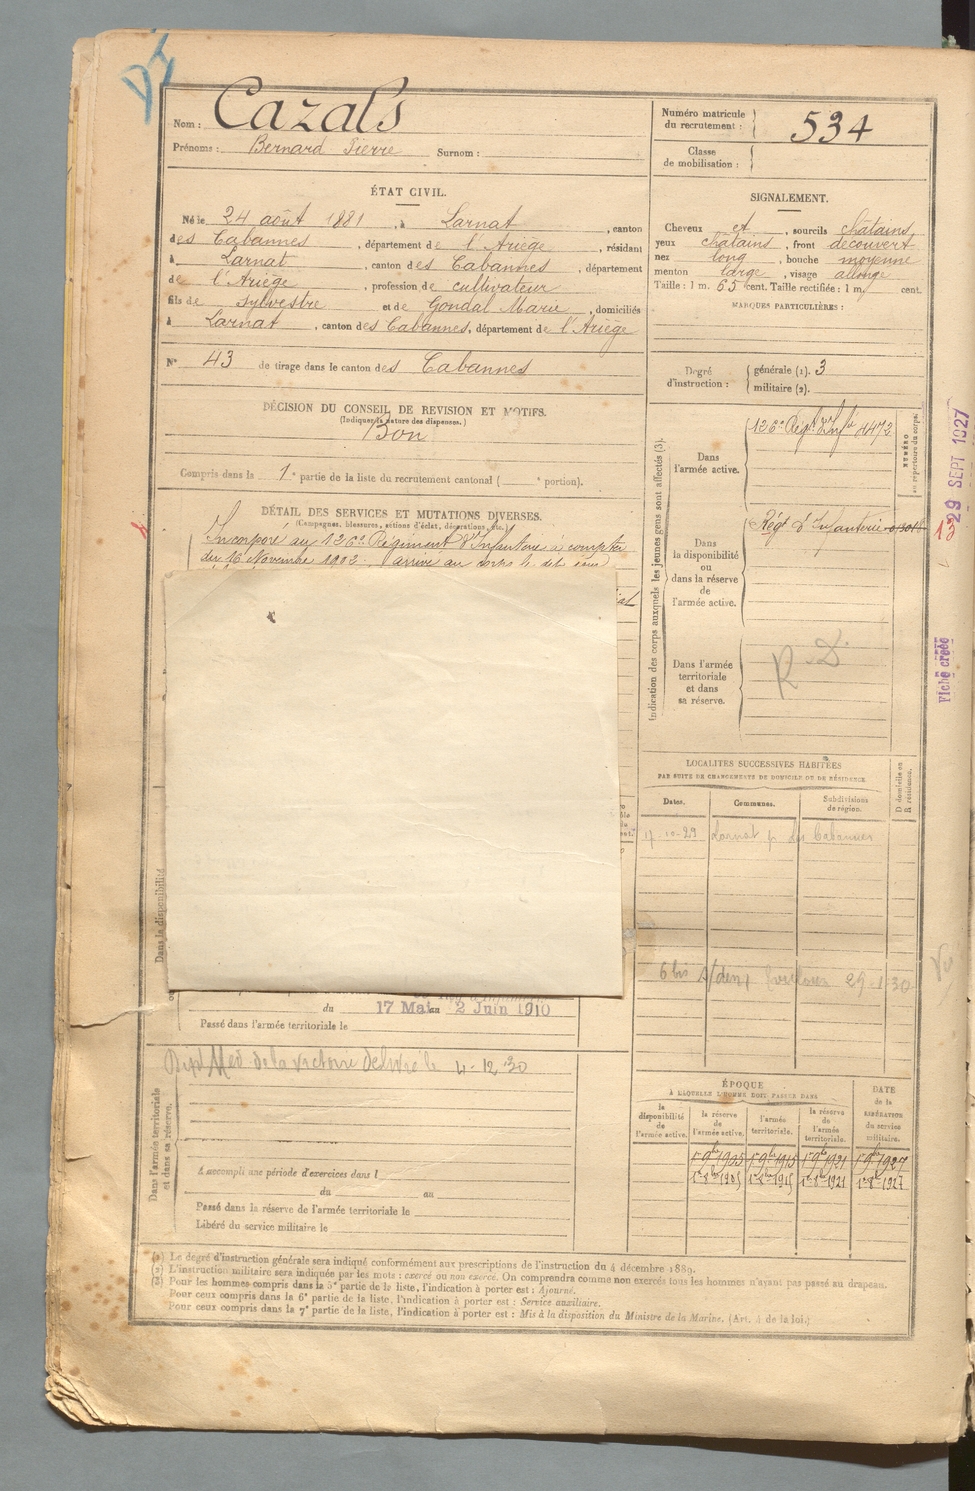 Nom : Cazals
Prénoms : Bernard Pierre Surnom :
Numéro matricule du recrutement : 534
Classe de mobilisation :
ÉTAT CIVIL.
Né le 24 août 1881, à Larnat, canton
des Cabannes, département de l'Ariège, résidant
à Larnat, canton des Cabannes, département
de l'Ariège, profession de cultivateur
fils de Sylvestre et de Gondal Marie, domiciliés
à Larnat, canton des Cabannes, département de l'Ariège
N° 43 de tirage dans le canton des Cabannes
DÉCISION DU CONSEIL DE REVISION ET MOTIFS.
(Indiquer la nature des dispenses.)
Bon
Compris dans la 1e partie de la liste du recrutement cantonal ( e portion).
DÉTAIL DES SERVICES ET MUTATIONS DIVERSES.
(Campagnes, blessures, actions d'éclat, décorations, etc.)
Incorporé au 126e Régiment d'Infanterie à compter
du 16 Novembre 1902. arrivé au corps le dit jour
SIGNALEMENT.
Cheveux et, sourcils châtains,
yeux châtains, front découvert
nez long, bouche moyenne
menton large, visage allongé
Taille : 1 m. 65 cent. Taille rectifiée : 1 m. cent.
MARQUES PARTICULIÈRES :
Degré d'instruction :
générale (1). 3
militaire (2).
Indication des corps auxquels les jeunes gens sont affectés (3).
NUMÉRO au répertoire du corps.
Dans l'armée active.
126e Régt d'Infie 4472
Dans la disponibilité ou dans la réserve de l'armée active.
Régt d'Infanterie
Dans l'armée territoriale et dans sa réserve.
R D.
29 SEPT 1927
Fiche créée
LOCALITÉS SUCCESSIVES HABITÉES
PAR SUITE DE CHANGEMENTS DE DOMICILE OU DE RÉSIDENCE
Dates. Communes. Subdivisions de région. D domicile ou R résidence.
17-10-29 Larnat p. les Cabannes
6 bis 29-1-30
Dans la disponibilité
du 17 Mai au 2 Juin 1910
Passé dans l'armée territoriale le
Dans l'armée territoriale et dans sa réserve.
Dipl Med de la victoire délivré le 4-12-30
A accompli une période d'exercices dans l
du au
Passé dans la réserve de l'armée territoriale le
Libéré du service militaire le
ÉPOQUE
À LAQUELLE L'HOMME DOIT PASSER DANS
la disponibilité de l'armée active.
la réserve de l'armée active.
l'armée territoriale.
la réserve de l'armée territoriale.
DATE de la LIBÉRATION du service militaire.
1er 9bre 1905 1er 9bre 1915 1er 9bre 1921 1er 9bre 1927
(1) Le degré d'instruction générale sera indiqué conformément aux prescriptions de l'instruction du 4 décembre 1889.
(2) L'instruction militaire sera indiquée par les mots : exercé ou non exercé. On comprendra comme non exercés tous les hommes n'ayant pas passé au drapeau.
(3) Pour les hommes compris dans la 5e partie de la liste, l'indication à porter est : Ajourné.
Pour ceux compris dans la 6e partie de la liste, l'indication à porter est : Service auxiliaire.
Pour ceux compris dans la 7e partie de la liste, l'indication à porter est : Mis à la disposition du Ministre de la Marine. (Art. 4 de la loi.)